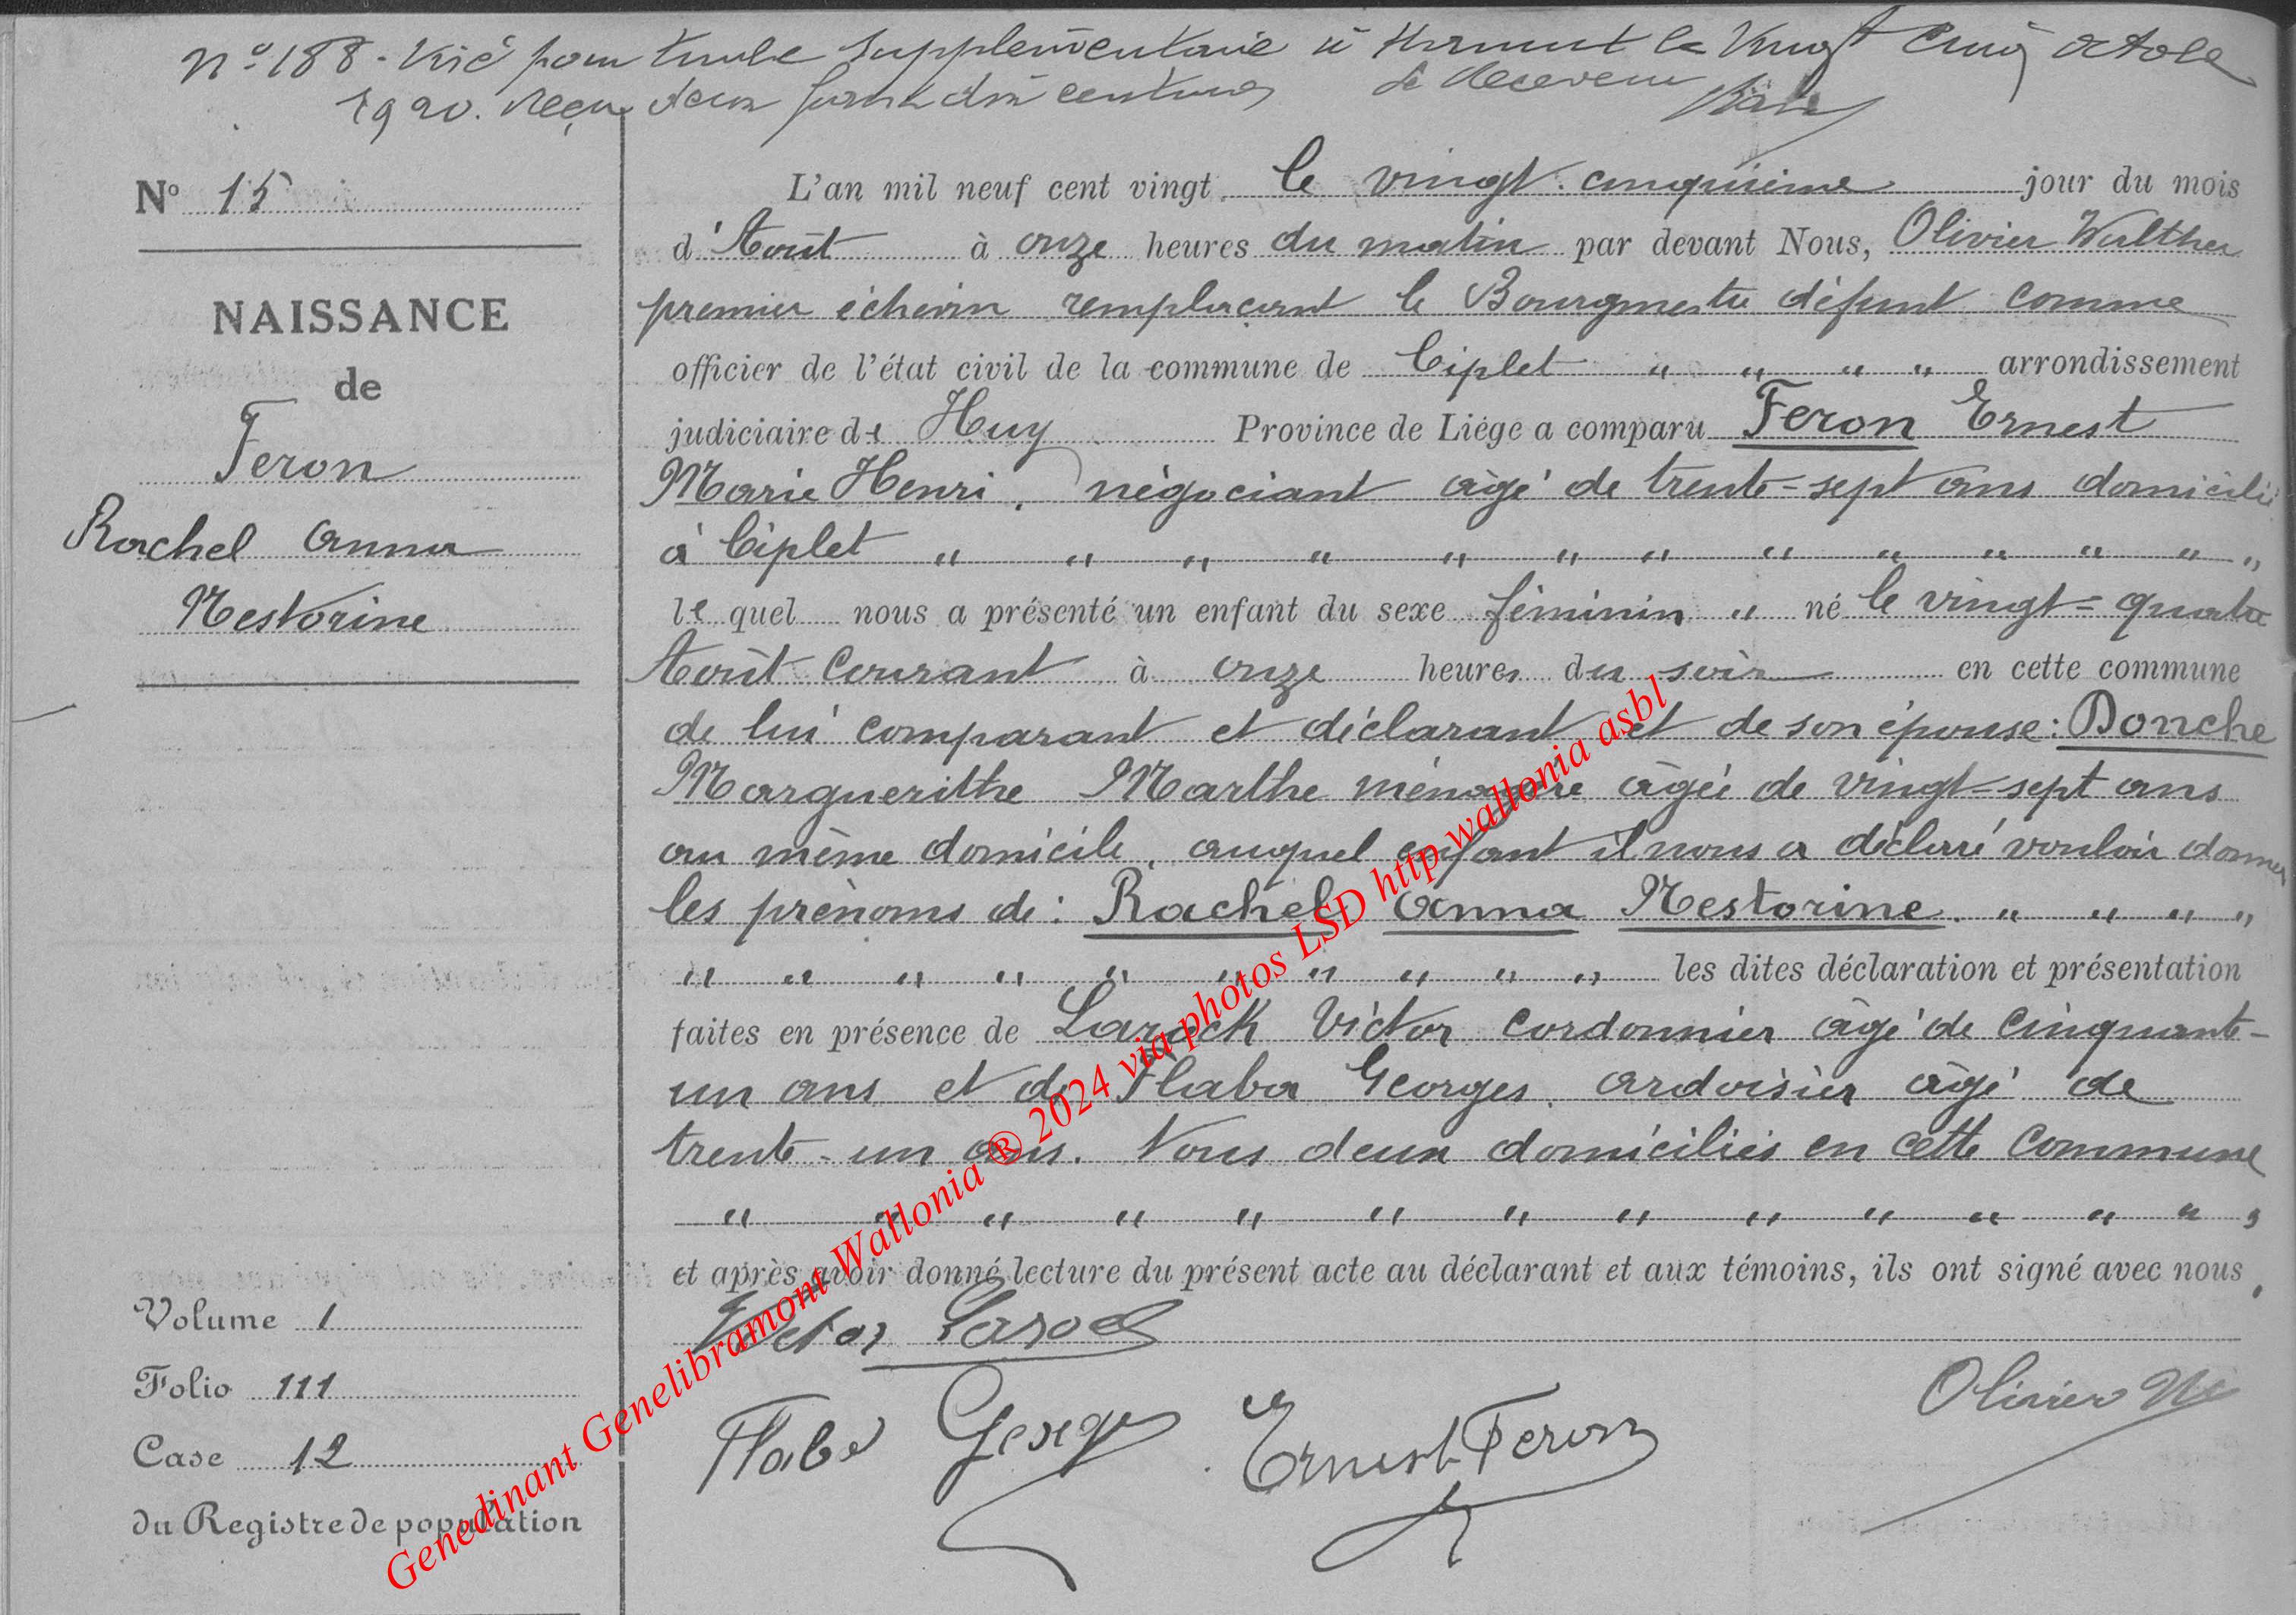 N° 188. Visé pour timbre supplémentaire à Hannut le vingt cinq octobre
1920. Reçu deux francs dix centimes Le Receveur
N° 15
NAISSANCE
de
Feron
Rachel Anna
Nestorine
L'an mil neuf cent vingt, le vingt-cinquième jour du mois
d'Août à onze heures du matin par devant Nous, Olivier Walther
premier échevin remplaçant le Bourgmestre défunt comme
officier de l'état civil de la commune de Ciplet " " " " arrondissement
judiciaire de Huy Province de Liége a comparu Feron Ernest
Marie Henri, négociant âgé de trente-sept ans domicilié
à Ciplet " " " " " " " " " " " " "
lequel nous a présenté un enfant du sexe féminin " né le vingt-quatre
Août courant à onze heures du soir en cette commune
de lui comparant et déclarant et de son épouse : Donche
Marguerithe Marthe ménagère âgée de vingt-sept ans
au même domicile, auquel enfant il nous a déclaré vouloir donner
les prénoms de : Rachel Anna Nestorine. " " " "
" " " " " " " " " " les dites déclaration et présentation
faites en présence de Larock Victor cordonnier âgé de cinquante-
un ans et de Flaba Georges, ardoisier âgé de
trente-un ans. Tous deux domiciliés en cette commune
" " " " " " " " " " " " " "
et après avoir donné lecture du présent acte au déclarant et aux témoins, ils ont signé avec nous,
Victor Larock
Flaba Georges Ernest Feron Olivier W
Volume 1
Folio 111
Case 12
du Registre de population
Genedinant Genelibramont Wallonia ® 2024 via photos LSD http wallonia asbl